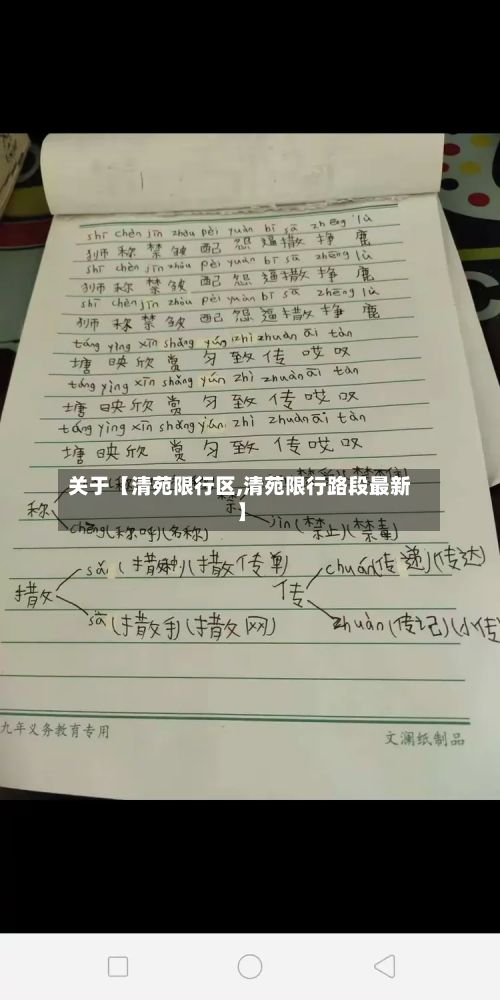 shī chèn jīn zhòu pèi yuàn bī sā zhēng lù
狮 称 禁 皱 配 怨 逼 撒 挣 鹿
shī chèn jīn zhòu pèi yuàn bī sā zhēng lù
狮 称 禁 皱 配 怨 逼 撒 挣 鹿
shī chèn jīn zhòu pèi yuàn bī sā zhēng lù
狮 称 禁 皱 配 怨 逼 撒 挣 鹿
táng yìng xīn shǎng yún zhì zhuàn āi tàn
塘 映 欣 赏 匀 致 传 哎 叹
táng yìng xīn shǎng yún zhì zhuàn āi tàn
塘 映 欣 赏 匀 致 传 哎 叹
táng yìng xīn shǎng yún zhì zhuàn āi tàn
塘 映 欣 赏 匀 致 传 哎 叹
关于【清苑限行区,清苑限行路段最新】
称 chēng(称呼)(名称)
禁 jìn(禁止)(禁毒)
撒 sǎ(撒种)(撒传单)
sā(撒手)(撒网)
传 chuán(传递)(传达)
zhuàn(传记)(小传
九年义务教育专用
文澜纸制品